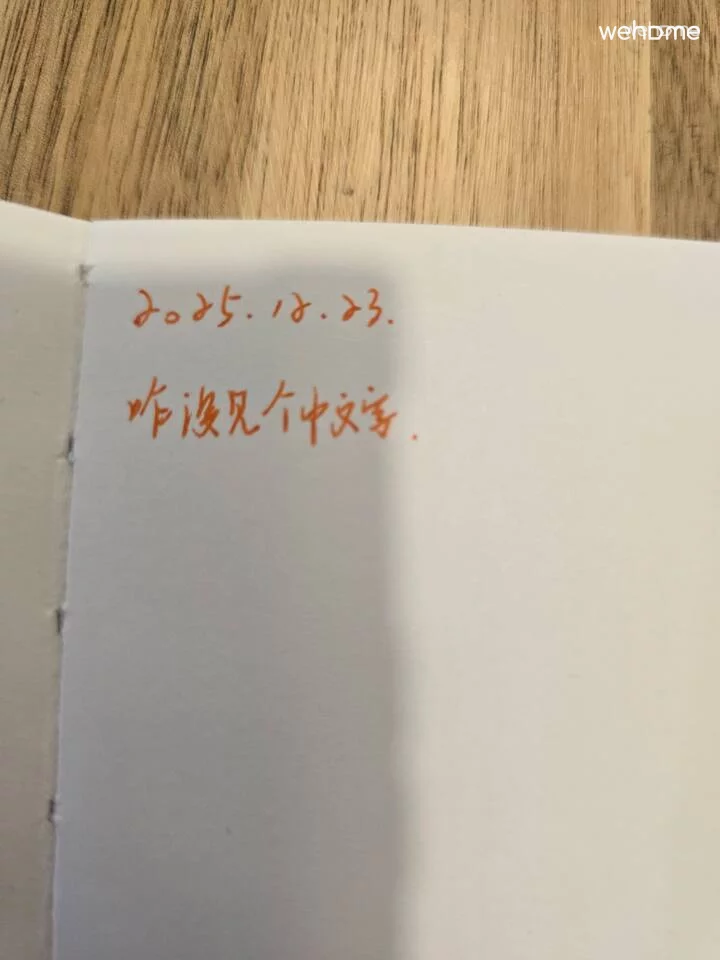 wehome
2025.12.23.
咋没见个中文字.